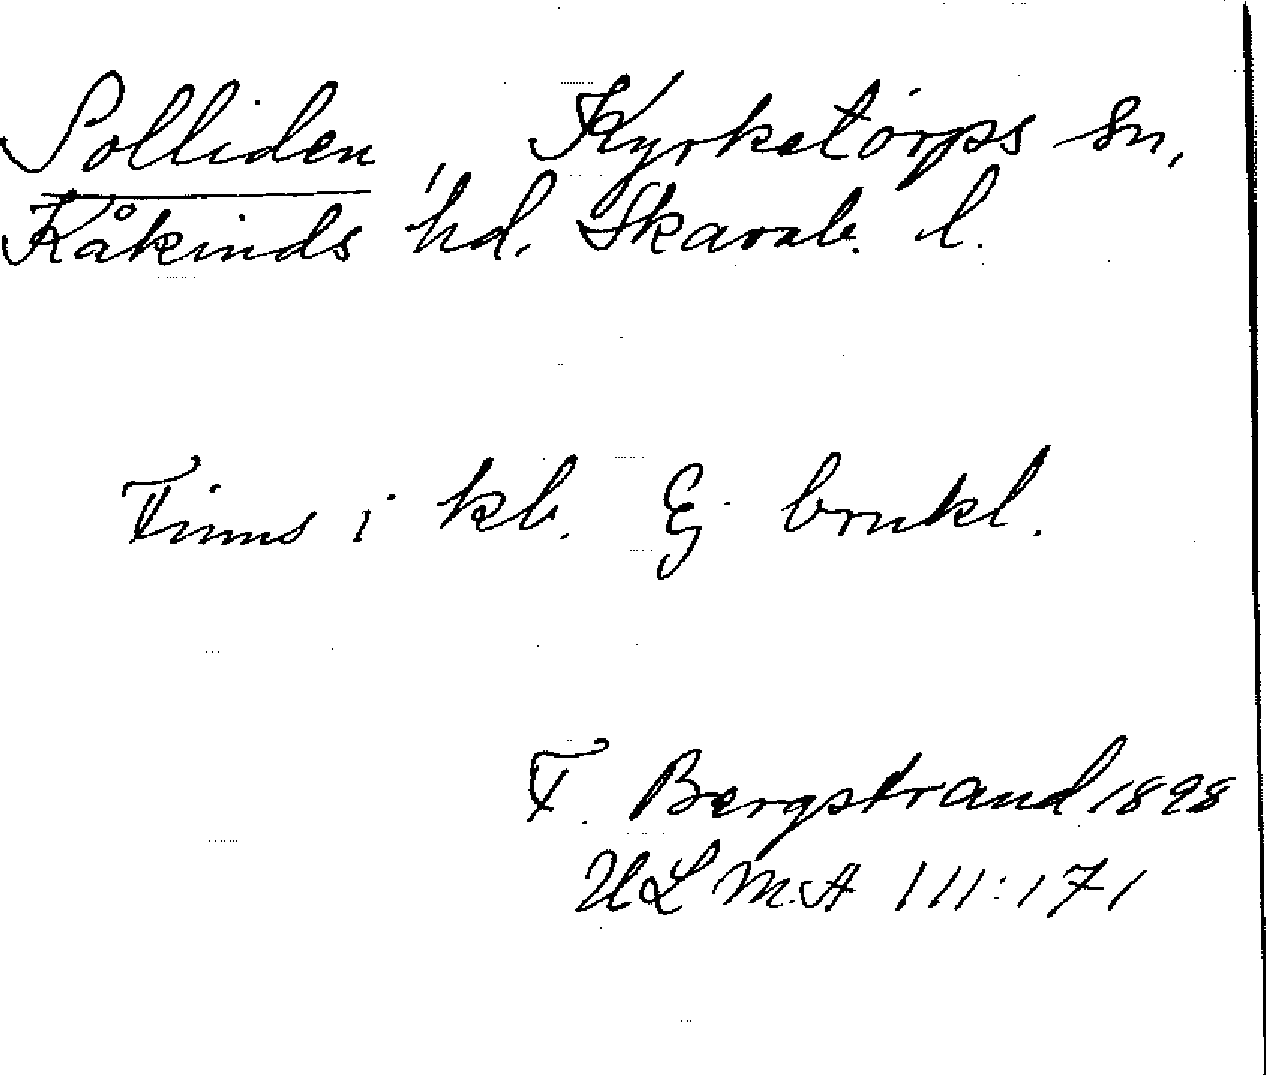 Solliden, Kyrketorps sn,
Kåkinds hd. Skarab. l.
Finns i kb. Ej brukl.
F. Bergstrand 1898
ULMA 111:171